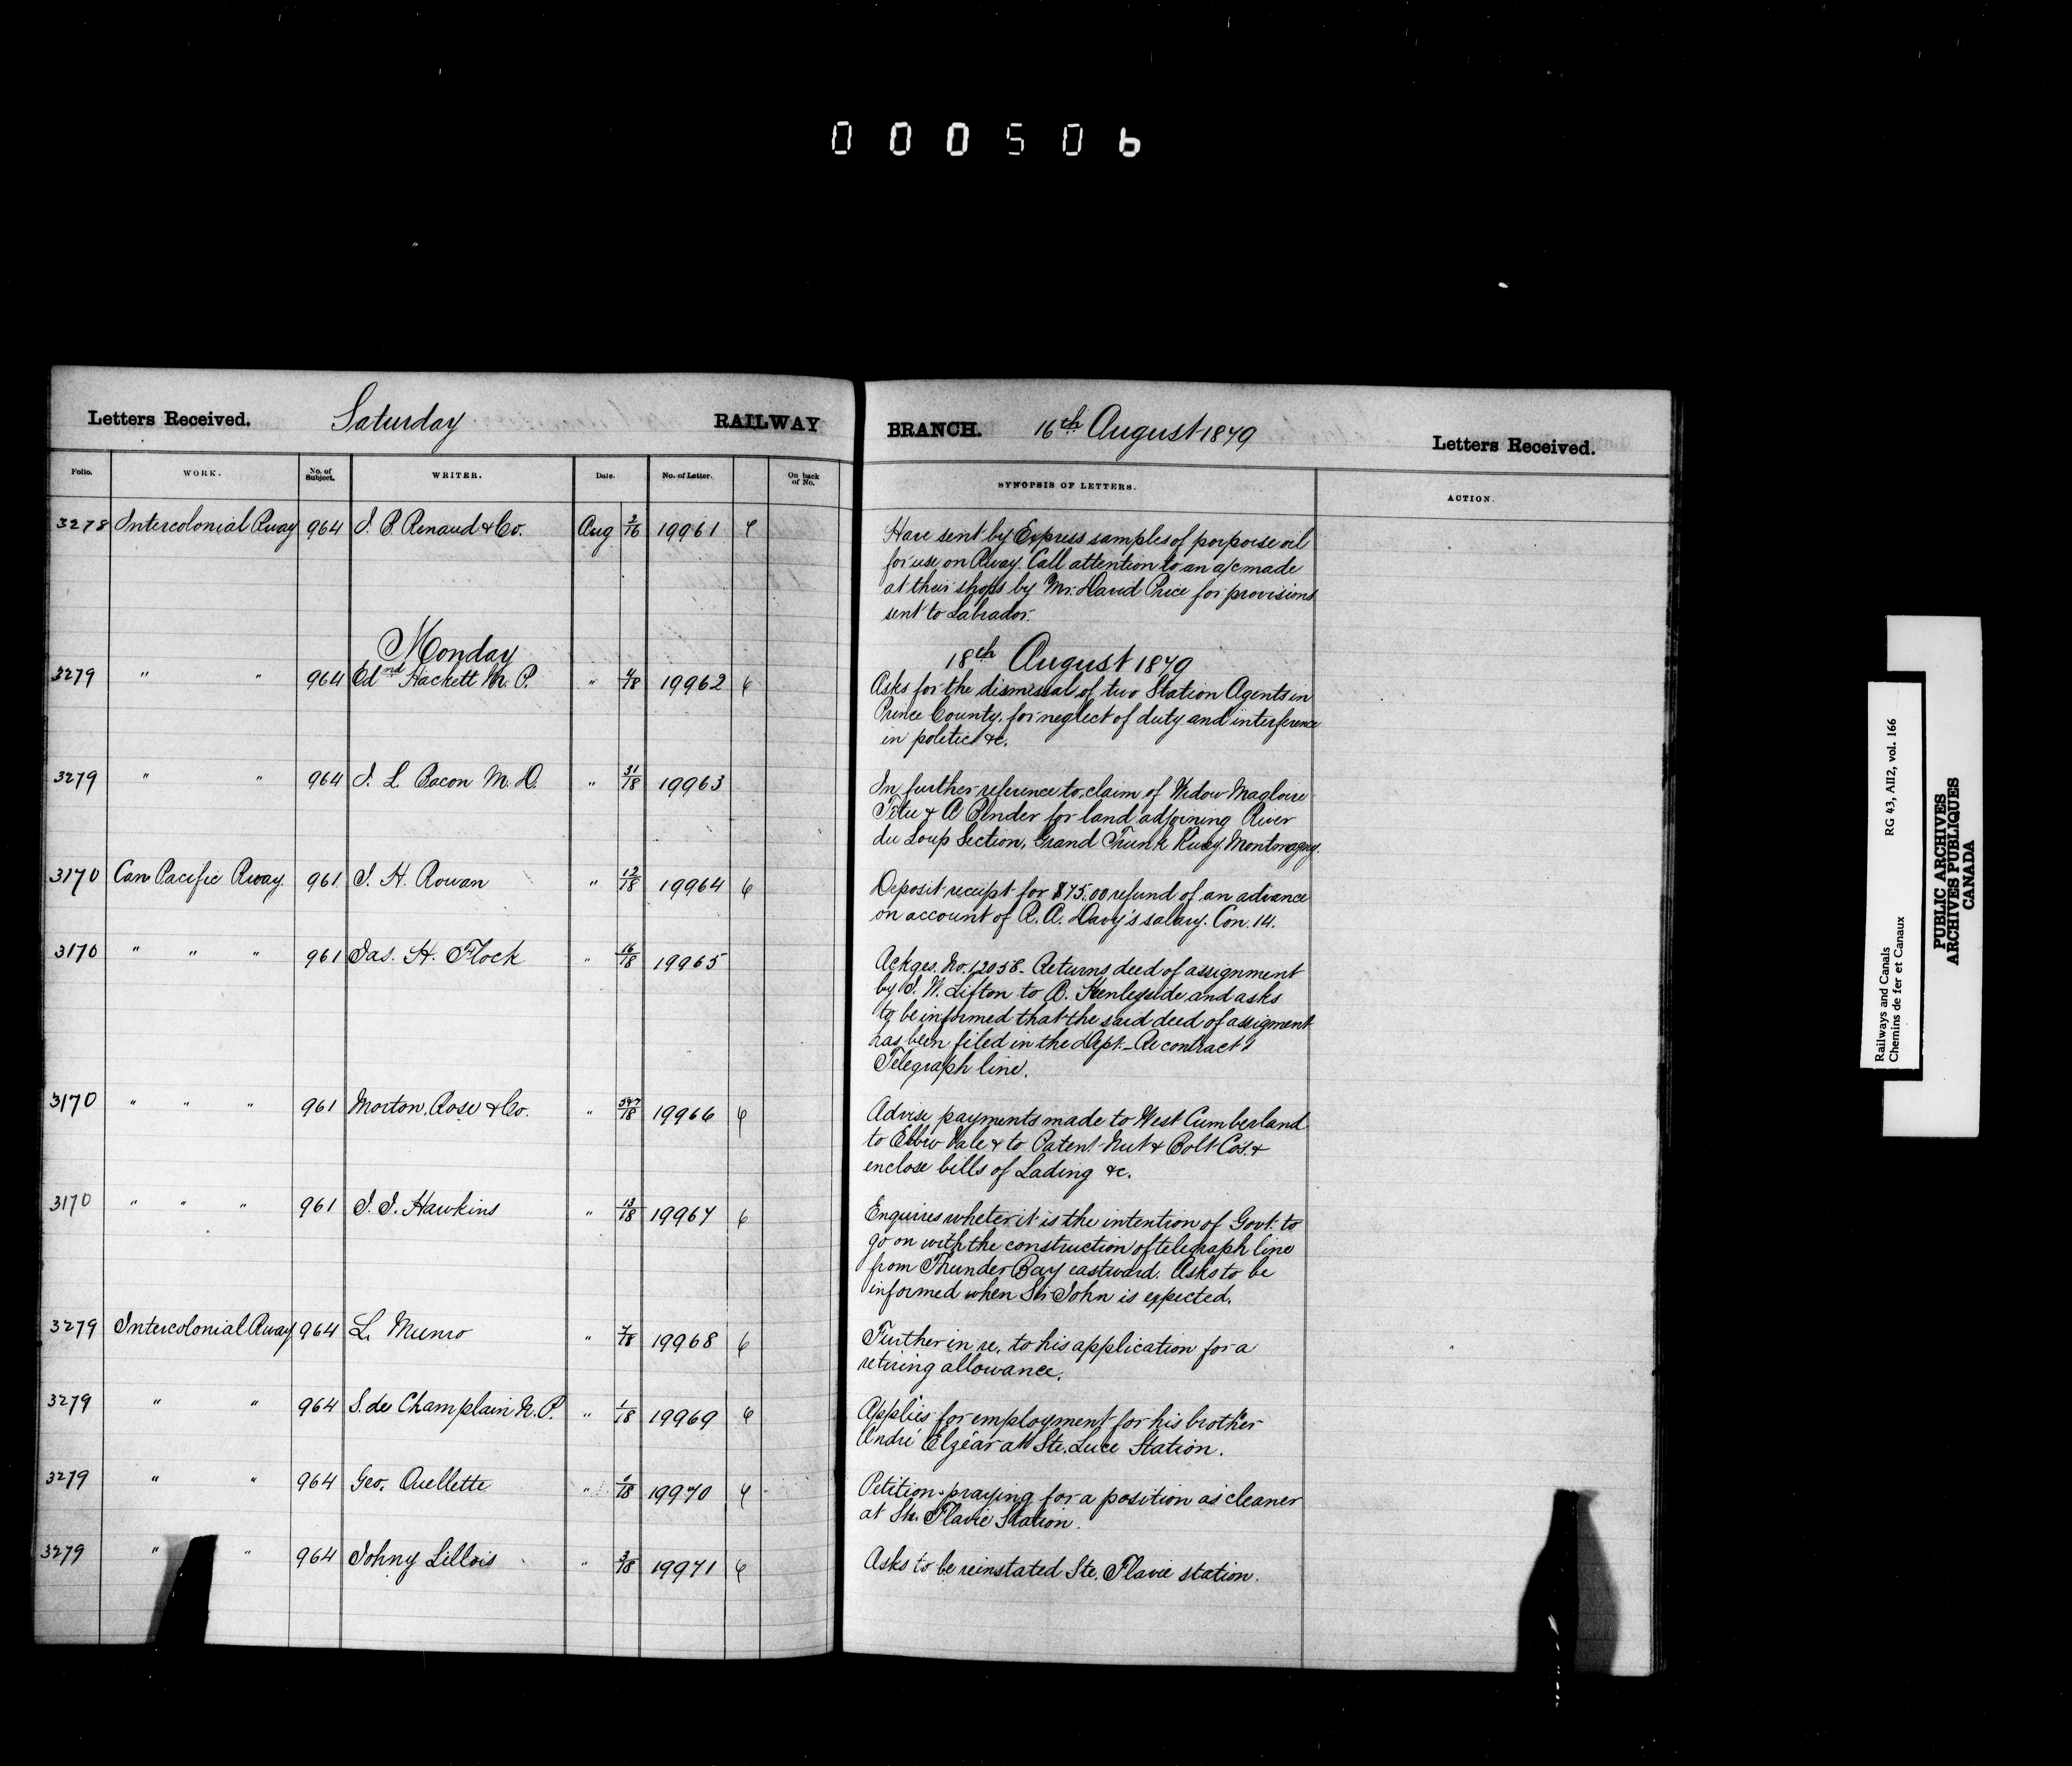 000506
Letters Received. Saturday RAILWAY BRANCH. 16th August 1879 Letters Received.
Folio. WORK. No. of Subject. WRITER. Date. No. of Letter. On back of No. SYNOPSIS OF LETTERS. ACTION.
3278 Intercolonial Rway 964 J. B. Renaud & Co. Aug 2/16 19961 6
Have sent by Express samples of porpoise oil
for use on Rway. Call attention to an a/c made
at their shops by Mr. David Price for provisions
sent to Labrador.
Monday 18th August 1879
3279 " " 964 Ednd Hackett M. P. " 4/18 19962 6
Asks for the dismissal of two Station Agents in
Prince County, for neglect of duty and interference
in politics &c.
3279 " " 964 J. L. Bacon M. D. " 31/18 19963
In further reference to claim of Widow Magloire
Tetu & A Bender for land adjoining River
du Loup Section, Grand Trunk Rway. Montmagny.
3170 Can Pacific Rway. 961 J. H. Rowan " 12/18 19964 6
Deposit receipt for $75.00 refund of an advance
on account of R. A. Davy's salary. Con. 14.
3170 " " " 961 Jas. H. Flock " 16/18 19965
Ackges. No. 12058. Returns deed of assignment
by J. W. Sifton to B. and asks
to be informed that the said deed of assigment
has been filed in the Dept. Re contract 1
Telegraph line.
3170 " " " 961 Morton, Rose & Co. " 18 19966 6
Advise payments made to West Cumberland
to Ebbw Vale & to Patent Nut & Bolt Cos. &
enclose bills of Lading &c.
3170 " " " 961 J. J. Hawkins " 13/18 19967 6
Enquires wheter it is the intention of Govt. to
go on with the construction of telegraph line
from Thunder Bay eastward. Asks to be
informed when Sir John is expected.
3279 Intercolonial Rway 964 L. Munro " 7/18 19968 6
Further in re. to his application for a
retiring allowance.
3279 " " 964 S. de Champlain N. P. " 1/18 19969 6
Applies for employment for his brother
André Elzéar at Ste. Luce Station.
3279 " " 964 Geo. Ouellette " 1/18 19970 6
Petition praying for a position as cleaner
at Ste. Flavie Station.
3279 " " 964 Johny Lillois " 3/18 19971 6
Asks to be reinstated Ste. Flavie station.
Railways and Canals RG 43, AII2, vol. 166
Chemins de fer et Canaux
PUBLIC ARCHIVES
ARCHIVES PUBLIQUES
CANADA